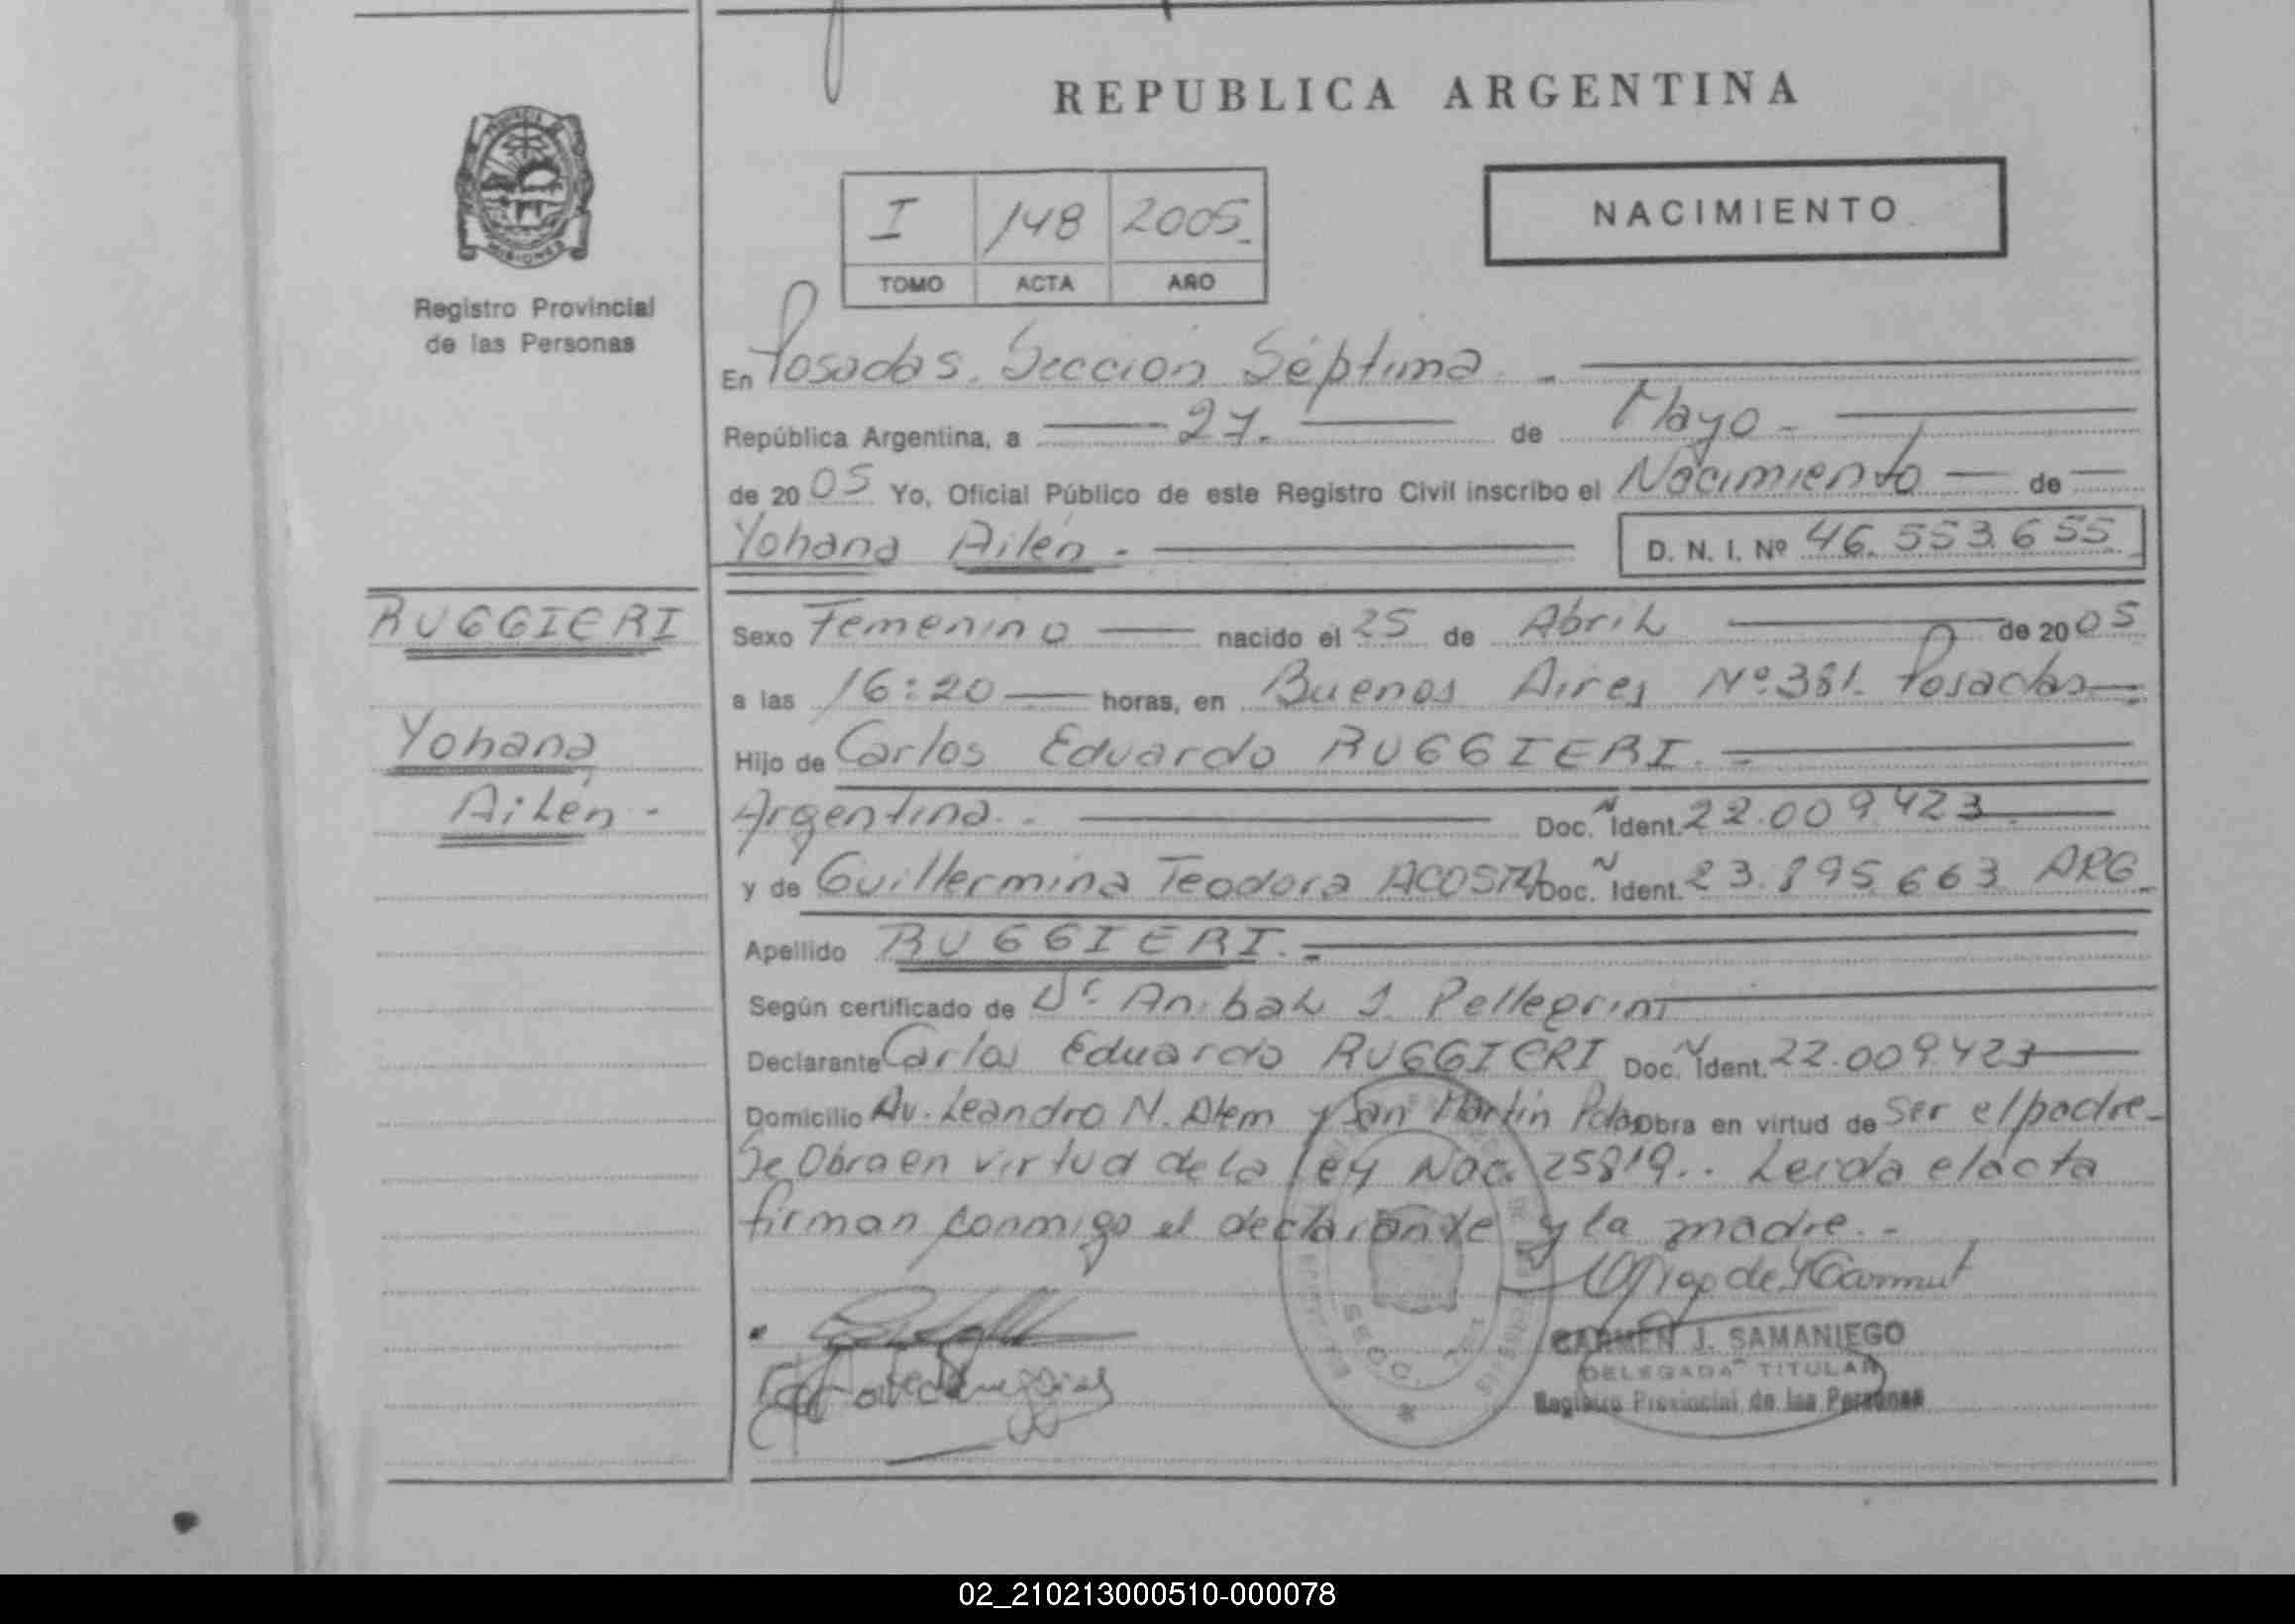 REPUBLICA ARGENTINA
PROVINCIA DE
MISIONES
Registro Provincial
de las Personas
I 148 2005
TOMO ACTA AÑO
NACIMIENTO
En Posadas. Sección Séptima
República Argentina, a 27. de Mayo
de 2005 Yo, Oficial Público de este Registro Civil inscribo el Nacimiento de
Yohana Ailén D. N. I. Nº 46.553.655
RUGGIERI
Yohana
Ailén
Sexo Femenino nacido el 25 de Abril de 2005
a las 16:20 horas, en Buenos Aires Nº 381. Posadas
Hijo de Carlos Eduardo RUGGIERI.
Argentina. Doc. N Ident. 22.009.423
y de Guillermina Teodora ACOSTA Doc. N Ident. 23.895.663 ARG
Apellido RUGGIERI.
Según certificado de Dr. Anibal J. Pellegrini
Declarante Carlos Eduardo RUGGIERI Doc. N Ident. 22.009.423
Domicilio Av. Leandro N. Alem y San Martín Pdas Obra en virtud de ser el padre
Se Obra en virtud de la ley Nac. 25819.. Leída el acta
firman conmigo el declarante y la madre..
SECC.
CARMEN J. SAMANIEGO
DELEGADA TITULAR
Registro Provincial de las Personas
02_210213000510-000078